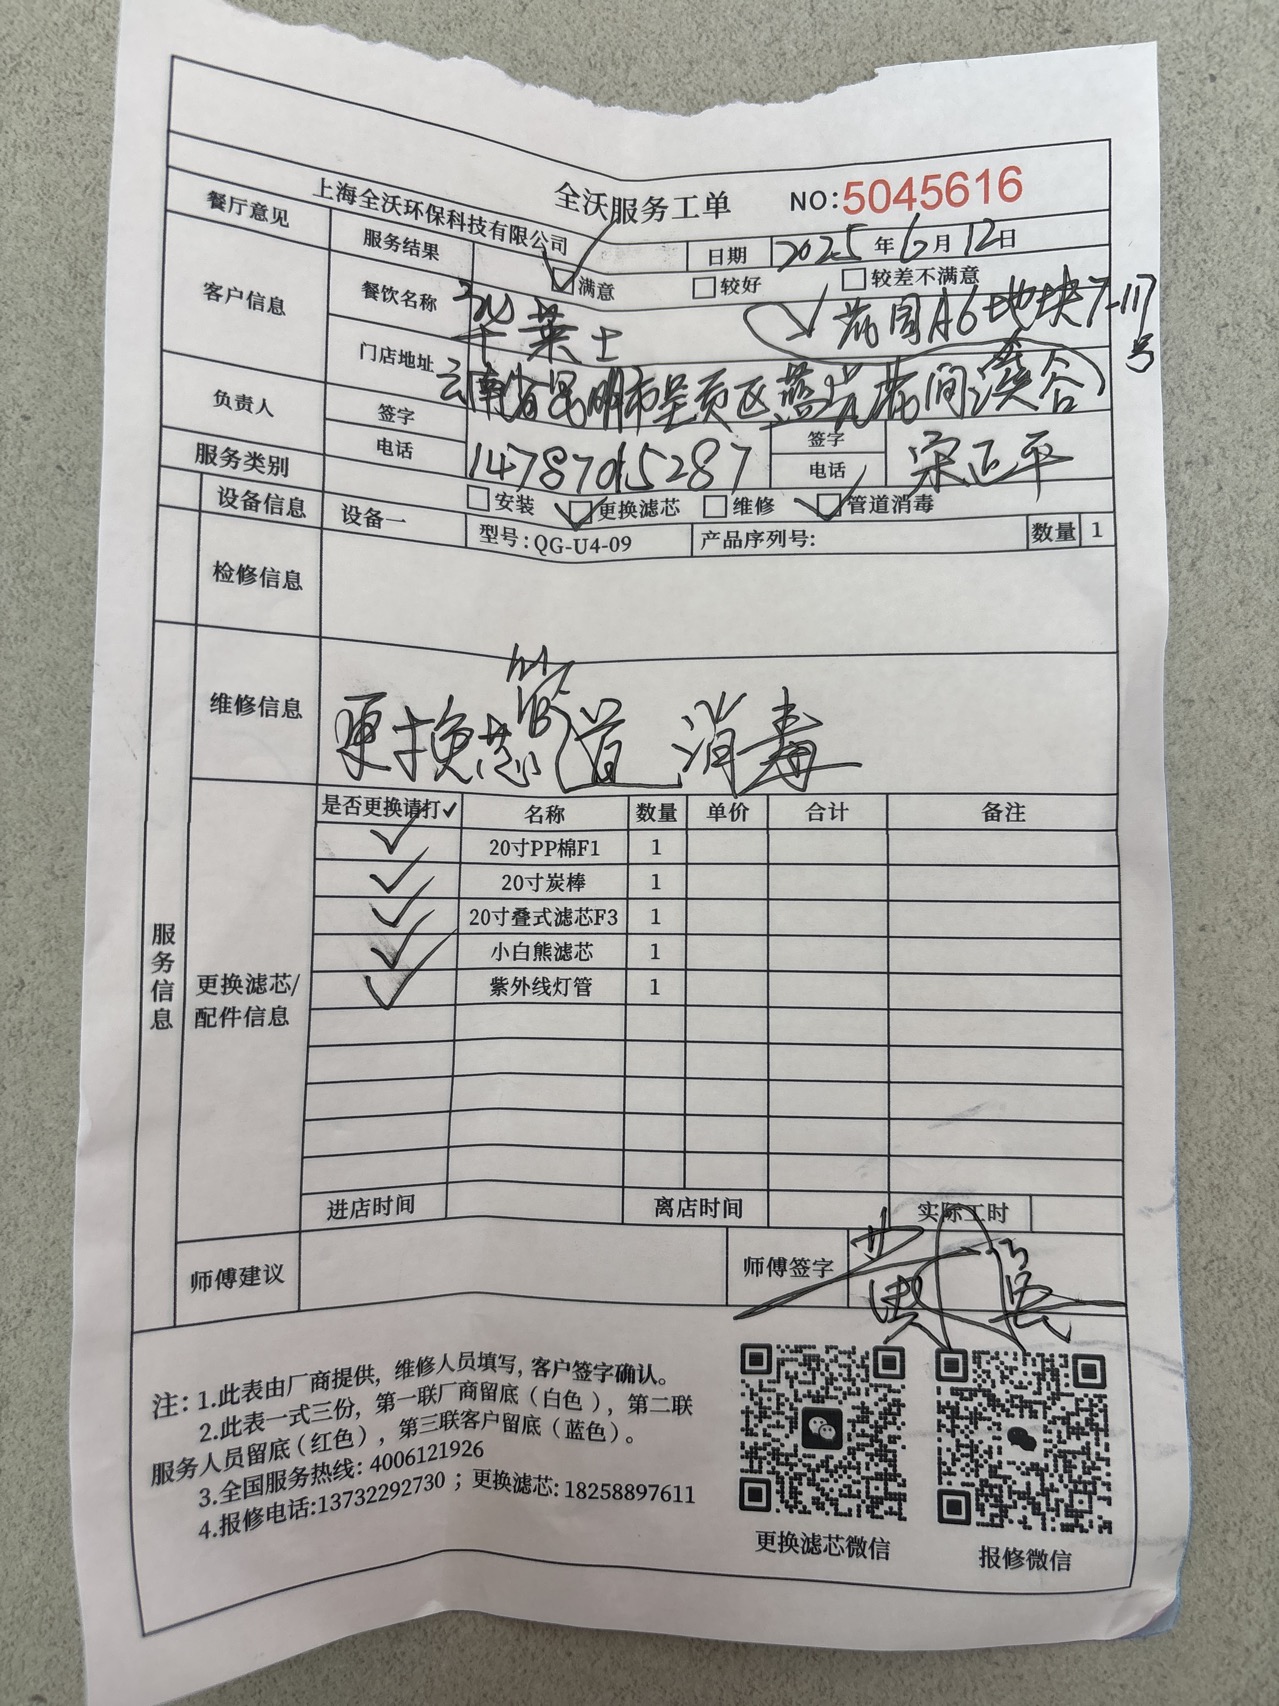 全沃服务工单 NO:5045616
上海全沃环保科技有限公司 日期 2025年6月12日
餐厅意见 服务结果 满意 较好 较差不满意
客户信息 餐饮名称 华莱士
花园A6地块7-117号
门店地址 云南省昆明市呈贡区蓝光花间溪谷
负责人 签字 签字 宋正平
电话 14787015287 电话
服务类别 安装 更换滤芯 维修 管道消毒
设备信息 设备一 型号:QG-U4-09 产品序列号: 数量 1
检修信息
维修信息 更换芯管道 消毒
服务信息
更换滤芯/
配件信息
是否更换请打✓ 名称 数量 单价 合计 备注
✓ 20寸PP棉F1 1
✓ 20寸炭棒 1
✓ 20寸叠式滤芯F3 1
✓ 小白熊滤芯 1
✓ 紫外线灯管 1
进店时间 离店时间 实际工时
师傅建议 师傅签字 黄
注:1.此表由厂商提供,维修人员填写,客户签字确认。
2.此表一式三份,第一联厂商留底(白色),第二联
服务人员留底(红色),第三联客户留底(蓝色)。
3.全国服务热线:4006121926
4.报修电话:13732292730;更换滤芯:18258897611
更换滤芯微信 报修微信